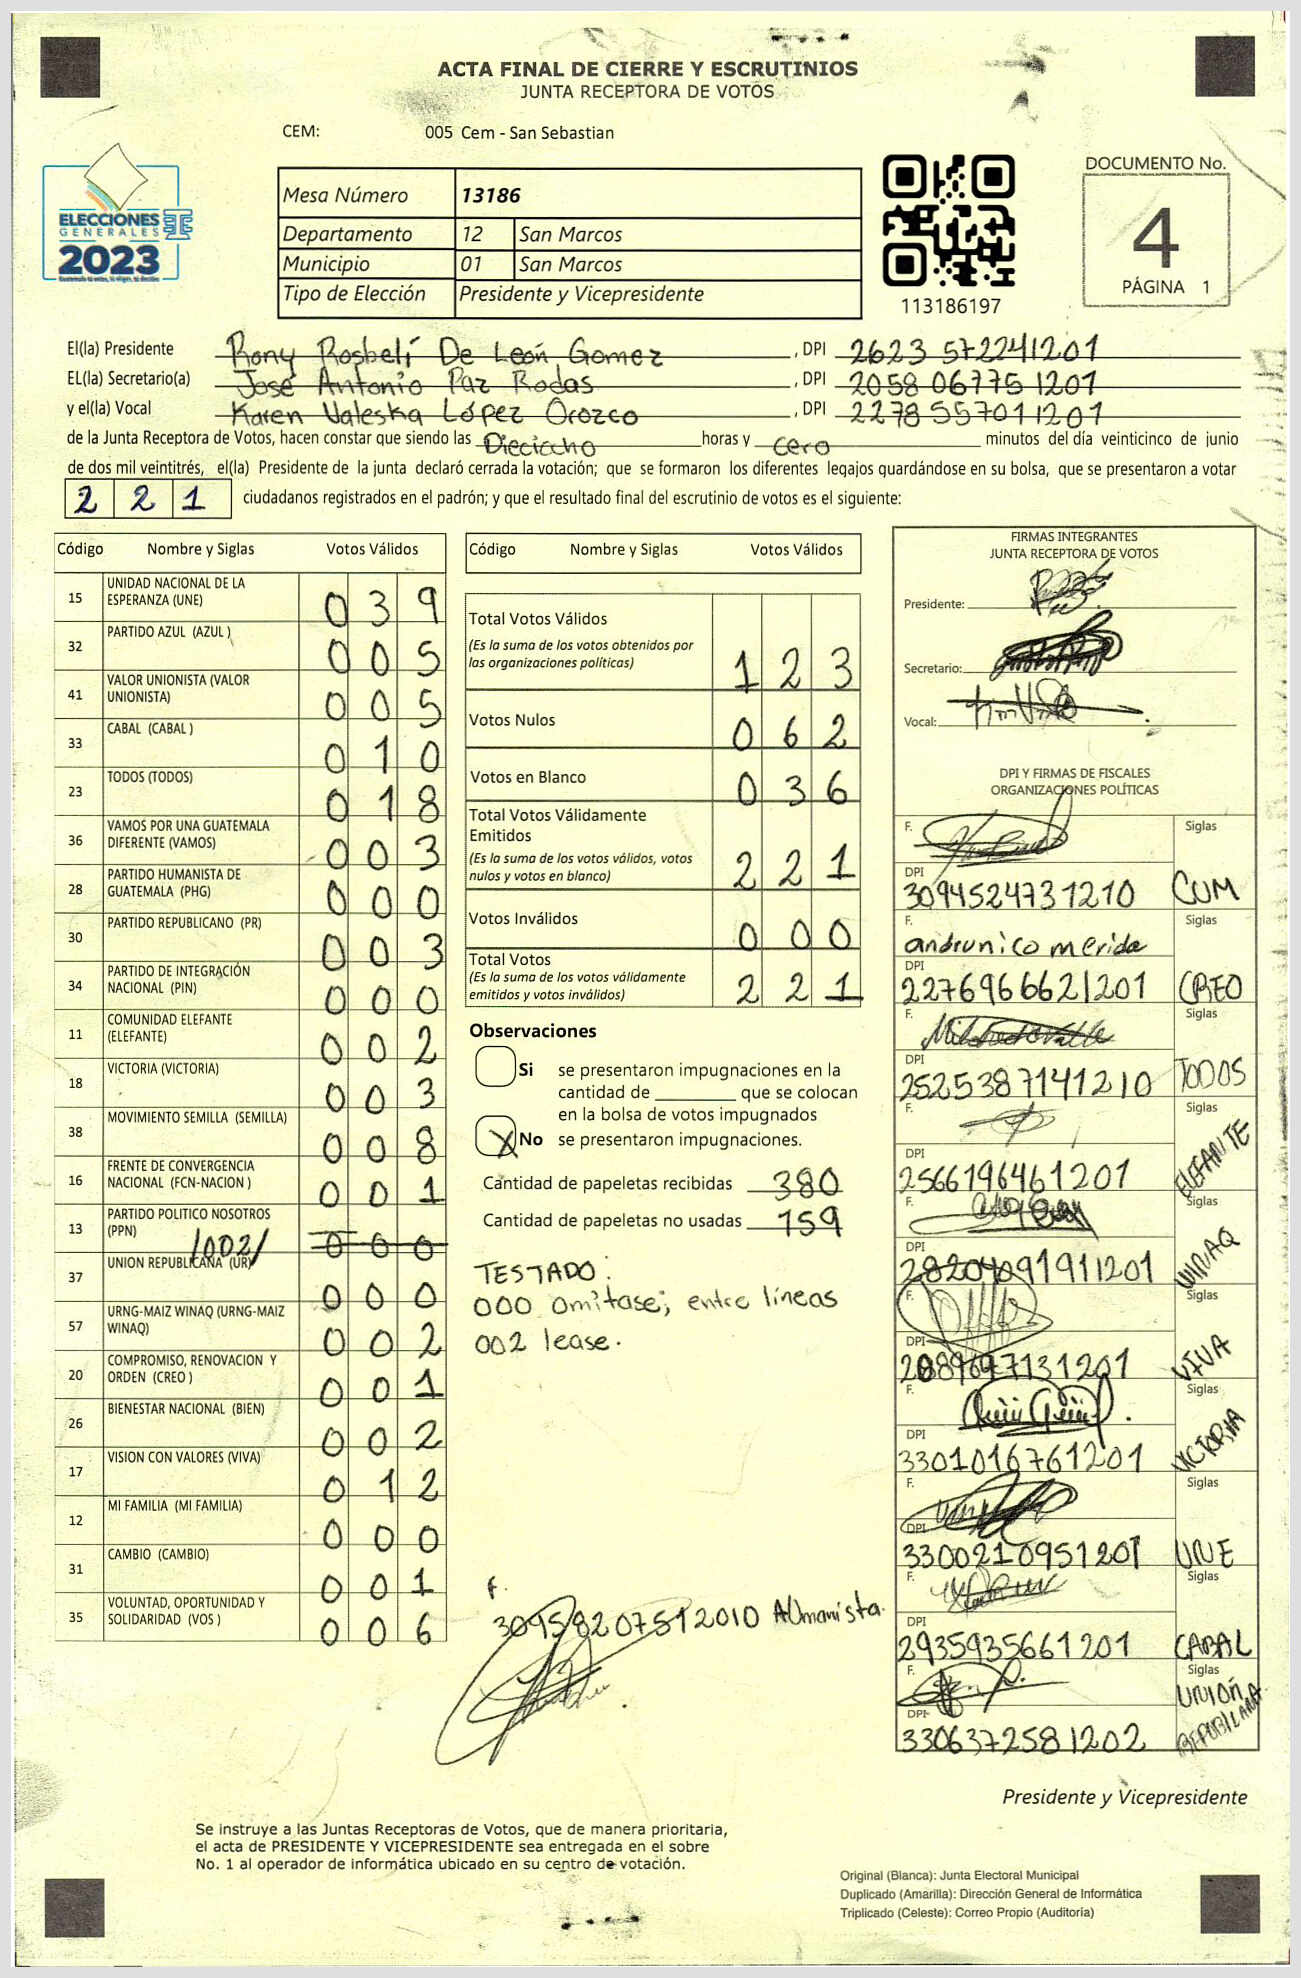 ACTA FINAL DE CIERRE Y ESCRUTINIOS
JUNTA RECEPTORA DE VOTOS
CEM: 005 Cem - San Sebastian
ELECCIONES
GENERALES
2023
Mesa Número 13186
Departamento 12 San Marcos
Municipio 01 San Marcos
Tipo de Elección Presidente y Vicepresidente
113186197
DOCUMENTO No.
4
PÁGINA 1
El(la) Presidente Rony Rosbelí De León Gomez , DPI 2623 572241201
EL(la) Secretario(a) José Antonio Paz Rodas , DPI 2058 06775 1201
y el(la) Vocal Karen Valeska López Orozco , DPI 2278 557011201
de la Junta Receptora de Votos, hacen constar que siendo las Dieciocho horas y cero minutos del día veinticinco de junio
de dos mil veintitrés, el(la) Presidente de la junta declaró cerrada la votación; que se formaron los diferentes legajos guardándose en su bolsa, que se presentaron a votar
2 2 1 ciudadanos registrados en el padrón; y que el resultado final del escrutinio de votos es el siguiente:
Código Nombre y Siglas Votos Válidos
15 UNIDAD NACIONAL DE LA ESPERANZA (UNE) 0 3 9
32 PARTIDO AZUL (AZUL ) 0 0 5
41 VALOR UNIONISTA (VALOR UNIONISTA) 0 0 5
33 CABAL (CABAL ) 0 1 0
23 TODOS (TODOS) 0 1 8
36 VAMOS POR UNA GUATEMALA DIFERENTE (VAMOS) 0 0 3
28 PARTIDO HUMANISTA DE GUATEMALA (PHG) 0 0 0
30 PARTIDO REPUBLICANO (PR) 0 0 3
34 PARTIDO DE INTEGRACIÓN NACIONAL (PIN) 0 0 0
11 COMUNIDAD ELEFANTE (ELEFANTE) 0 0 2
18 VICTORIA (VICTORIA) 0 0 3
38 MOVIMIENTO SEMILLA (SEMILLA) 0 0 8
16 FRENTE DE CONVERGENCIA NACIONAL (FCN-NACION ) 0 0 1
13 PARTIDO POLITICO NOSOTROS (PPN) /002/ 0 0 0
37 UNION REPUBLICANA (UR) 0 0 0
57 URNG-MAIZ WINAQ (URNG-MAIZ WINAQ) 0 0 2
20 COMPROMISO, RENOVACION Y ORDEN (CREO ) 0 0 1
26 BIENESTAR NACIONAL (BIEN) 0 0 2
17 VISION CON VALORES (VIVA) 0 1 2
12 MI FAMILIA (MI FAMILIA) 0 0 0
31 CAMBIO (CAMBIO) 0 0 1
35 VOLUNTAD, OPORTUNIDAD Y SOLIDARIDAD (VOS ) 0 0 6
Código Nombre y Siglas Votos Válidos
Total Votos Válidos
(Es la suma de los votos obtenidos por
las organizaciones políticas) 1 2 3
Votos Nulos 0 6 2
Votos en Blanco 0 3 6
Total Votos Válidamente
Emitidos
(Es la suma de los votos válidos, votos
nulos y votos en blanco) 2 2 1
Votos Inválidos 0 0 0
Total Votos
(Es la suma de los votos válidamente
emitidos y votos inválidos) 2 2 1
Observaciones
Si se presentaron impugnaciones en la
cantidad de ________ que se colocan
en la bolsa de votos impugnados
X No se presentaron impugnaciones.
Cantidad de papeletas recibidas 380
Cantidad de papeletas no usadas 159
TESTADO:
000 omitase; entre líneas
002 lease.
f.
3095820751 2010 HUmanista
FIRMAS INTEGRANTES
JUNTA RECEPTORA DE VOTOS
Presidente:
Secretario:
Vocal:
DPI Y FIRMAS DE FISCALES
ORGANIZACIONES POLÍTICAS
F. Siglas
DPI
3094524731210 CUM
F. andrunico merida Siglas
DPI
2276966621201 CREO
F. Siglas
DPI
2525387141210 TODOS
F. Siglas
DPI
2566196461201 ELEFANTE
F. Siglas
DPI
2820409191 1201 WINAQ
F. Siglas
DPI
2089697131201 VIVA
F. Siglas
DPI
3301016761201 VICTORIA
F. Siglas
DPI
3300210951201 UNE
F. Siglas
DPI
2935935661201 CABAL
F. Siglas
DPI
3306372581202 UNIÓN REPUBLICANA
Presidente y Vicepresidente
Se instruye a las Juntas Receptoras de Votos, que de manera prioritaria,
el acta de PRESIDENTE Y VICEPRESIDENTE sea entregada en el sobre
No. 1 al operador de informática ubicado en su centro de votación.
Original (Blanca): Junta Electoral Municipal
Duplicado (Amarilla): Dirección General de Informática
Triplicado (Celeste): Correo Propio (Auditoría)